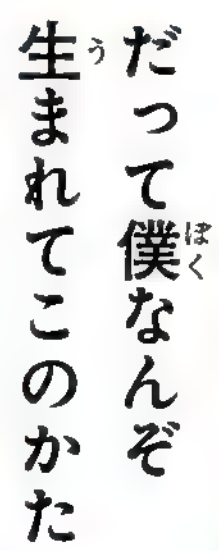 だって僕なんぞ
生まれてこのかた